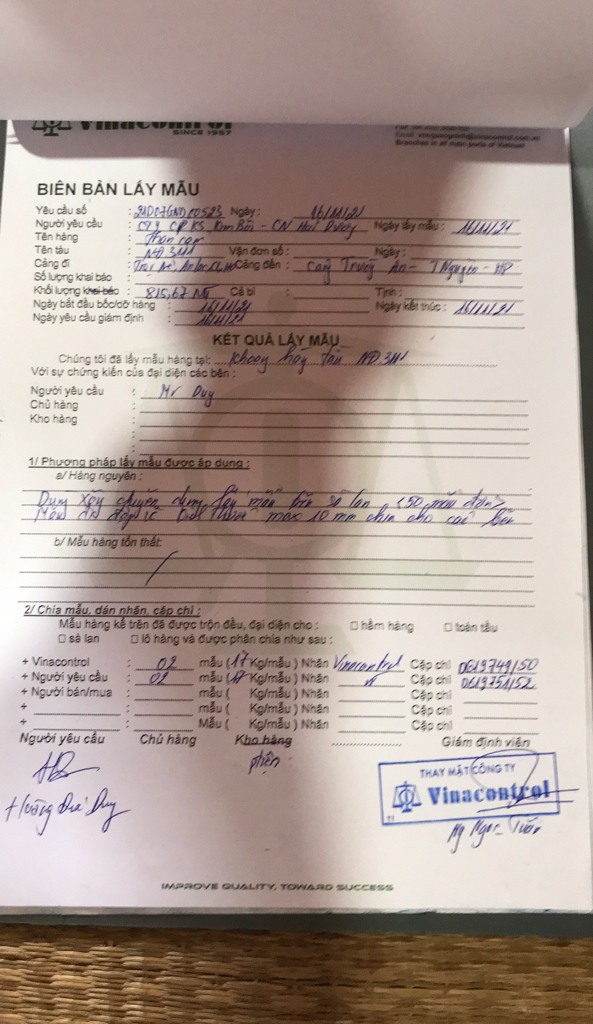 Vinacontrol
SINCE 1957
Branches in all main ports of Vietnam
BIÊN BẢN LẤY MẪU
Yêu cầu số : 21D07GND00523 Ngày: 16/11/21
Người yêu cầu : CTy CP KS Kim Bôi - CN Hải Dương Ngày lấy mẫu : 16/11/21
Tên hàng : Than cám
Tên tàu : NĐ 3111 Vận đơn số : Ngày:
Cảng đi : Cảng đến : Cảng Trường An - T Nguyên - HP
Số lượng khai báo
Khối lượng khai báo : 815,67 Cả bì : Tịnh :
Ngày bắt đầu bốc/dỡ hàng : 16/11/21 Ngày kết thúc : 16/11/21
Ngày yêu cầu giám định : 16/11/21
KẾT QUẢ LẤY MẪU
Chúng tôi đã lấy mẫu hàng tại: Khoang hàng tàu NĐ 3111
Với sự chứng kiến của đại diện các bên :
Người yêu cầu : Mr Duy
Chủ hàng :
Kho hàng :
1/ Phương pháp lấy mẫu được áp dụng :
a/ Hàng nguyên :
Dùng xẻng chuyên dụng lấy mẫu trên sà lan (50 mẫu đơn)
Mẫu max 10 mm chia cho các bên
b/ Mẫu hàng tổn thất:
2/ Chia mẫu, dán nhãn, cặp chì :
Mẫu hàng kể trên đã được trộn đều, đại diện cho : □ hầm hàng □ toàn tàu
□ sà lan □ lô hàng và được phân chia như sau :
+ Vinacontrol : 02 mẫu (17 Kg/mẫu ) Nhãn Vinacontrol Cặp chì 0619749/50
+ Người yêu cầu : 02 mẫu (17 Kg/mẫu ) Nhãn Cặp chì 0619751/52
+ Người bán/mua : mẫu ( Kg/mẫu ) Nhãn Cặp chì
+ : mẫu ( Kg/mẫu ) Nhãn Cặp chì
+ : Mẫu ( Kg/mẫu ) Nhãn Cặp chì
Người yêu cầu Chủ hàng Kho hàng Giám định viên
THAY MẶT CÔNG TY
Vinacontrol
Duy
Ng Ngọc Tuấn
IMPROVE QUALITY, TOWARD SUCCESS